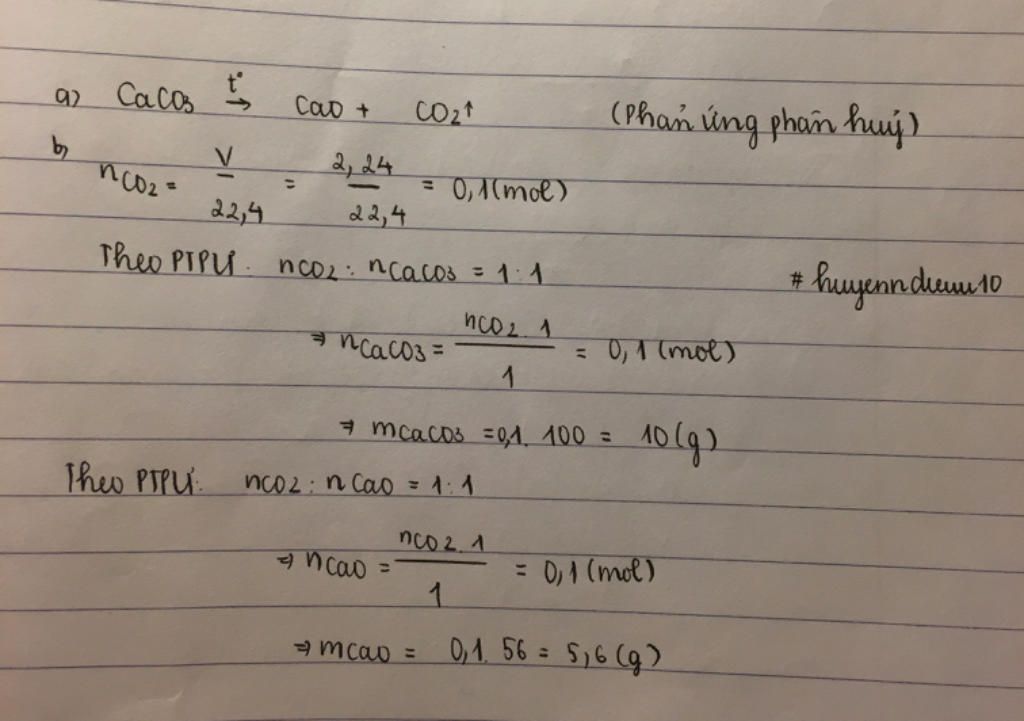 a) CaCO3 t°→ CaO + CO2↑ (Phản ứng phân huỷ)
b) nCO2 = V/22,4 = 2,24/22,4 = 0,1(mol)
Theo PTPƯ: nCO2 : nCaCO3 = 1:1
# huyenndieuu10
⇒ nCaCO3 = nCO2.1/1 = 0,1(mol)
⇒ mCaCO3 = 0,1. 100 = 10(g)
Theo PTPƯ: nCO2 : nCaO = 1:1
⇒ nCaO = nCO2.1/1 = 0,1(mol)
⇒ mCaO = 0,1. 56 = 5,6(g)